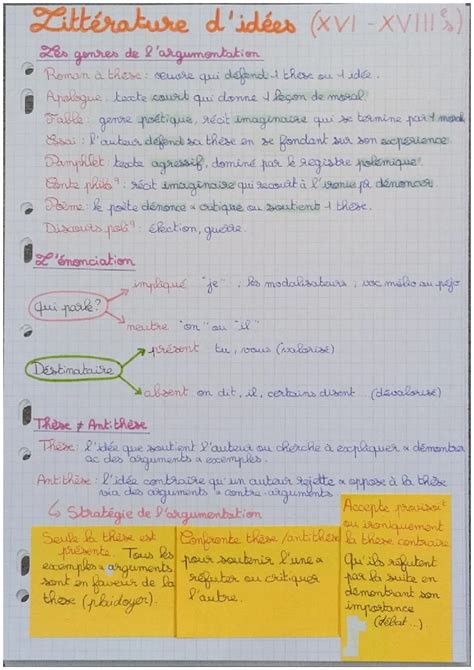 Littérature d'idées (XVI - XVIIIe s)
Les genres de l'argumentation
Roman à thèse : œuvre qui défend 1 thèse ou 1 idée.
Apologue : texte court qui donne 1 leçon de moral.
Fable : genre poétique, récit imaginaire qui se termine par 1 moral
Essai : l'auteur défend sa thèse en se fondant sur son expérience.
Pamphlet : texte agressif, dominé par le registre polémique.
Conte philoq : récit imaginaire qui recourt à l'ironie pr dénoncer.
Poème : le poète dénonce & critique ou soutient 1 thèse.
Discours polq : élection, guerre.
L'énonciation
impliqué "je", les modalisateurs ; voc mélio ou péjo
Qui parle?
neutre "on" ou "il"
présent tu, vous (valorisé)
Destinataire
absent on dit, il, certains disent ... (dévalorisé)
Thèse ≠ Antithèse
Thèse : l'idée que soutient l'auteur ou cherche à expliquer & démontrer
ac des arguments & exemples.
Antithèse : l'idée contraire qu'un auteur rejette & oppose à la thèse
via des arguments & contre-arguments
↳ Stratégie de l'argumentation
Seule la thèse est
présente. Tous les
exemples & arguments
sont en faveur de la
thèse (plaidoyer).
Confronte thèse/antithèse
pour soutenir l'une &
réfuter ou critiquer
l'autre.
Accepte provisoirt
ou ironiquement
la thèse contraire
Qu'ils réfutent
par la suite en
démontrant son
importance
(débat...)